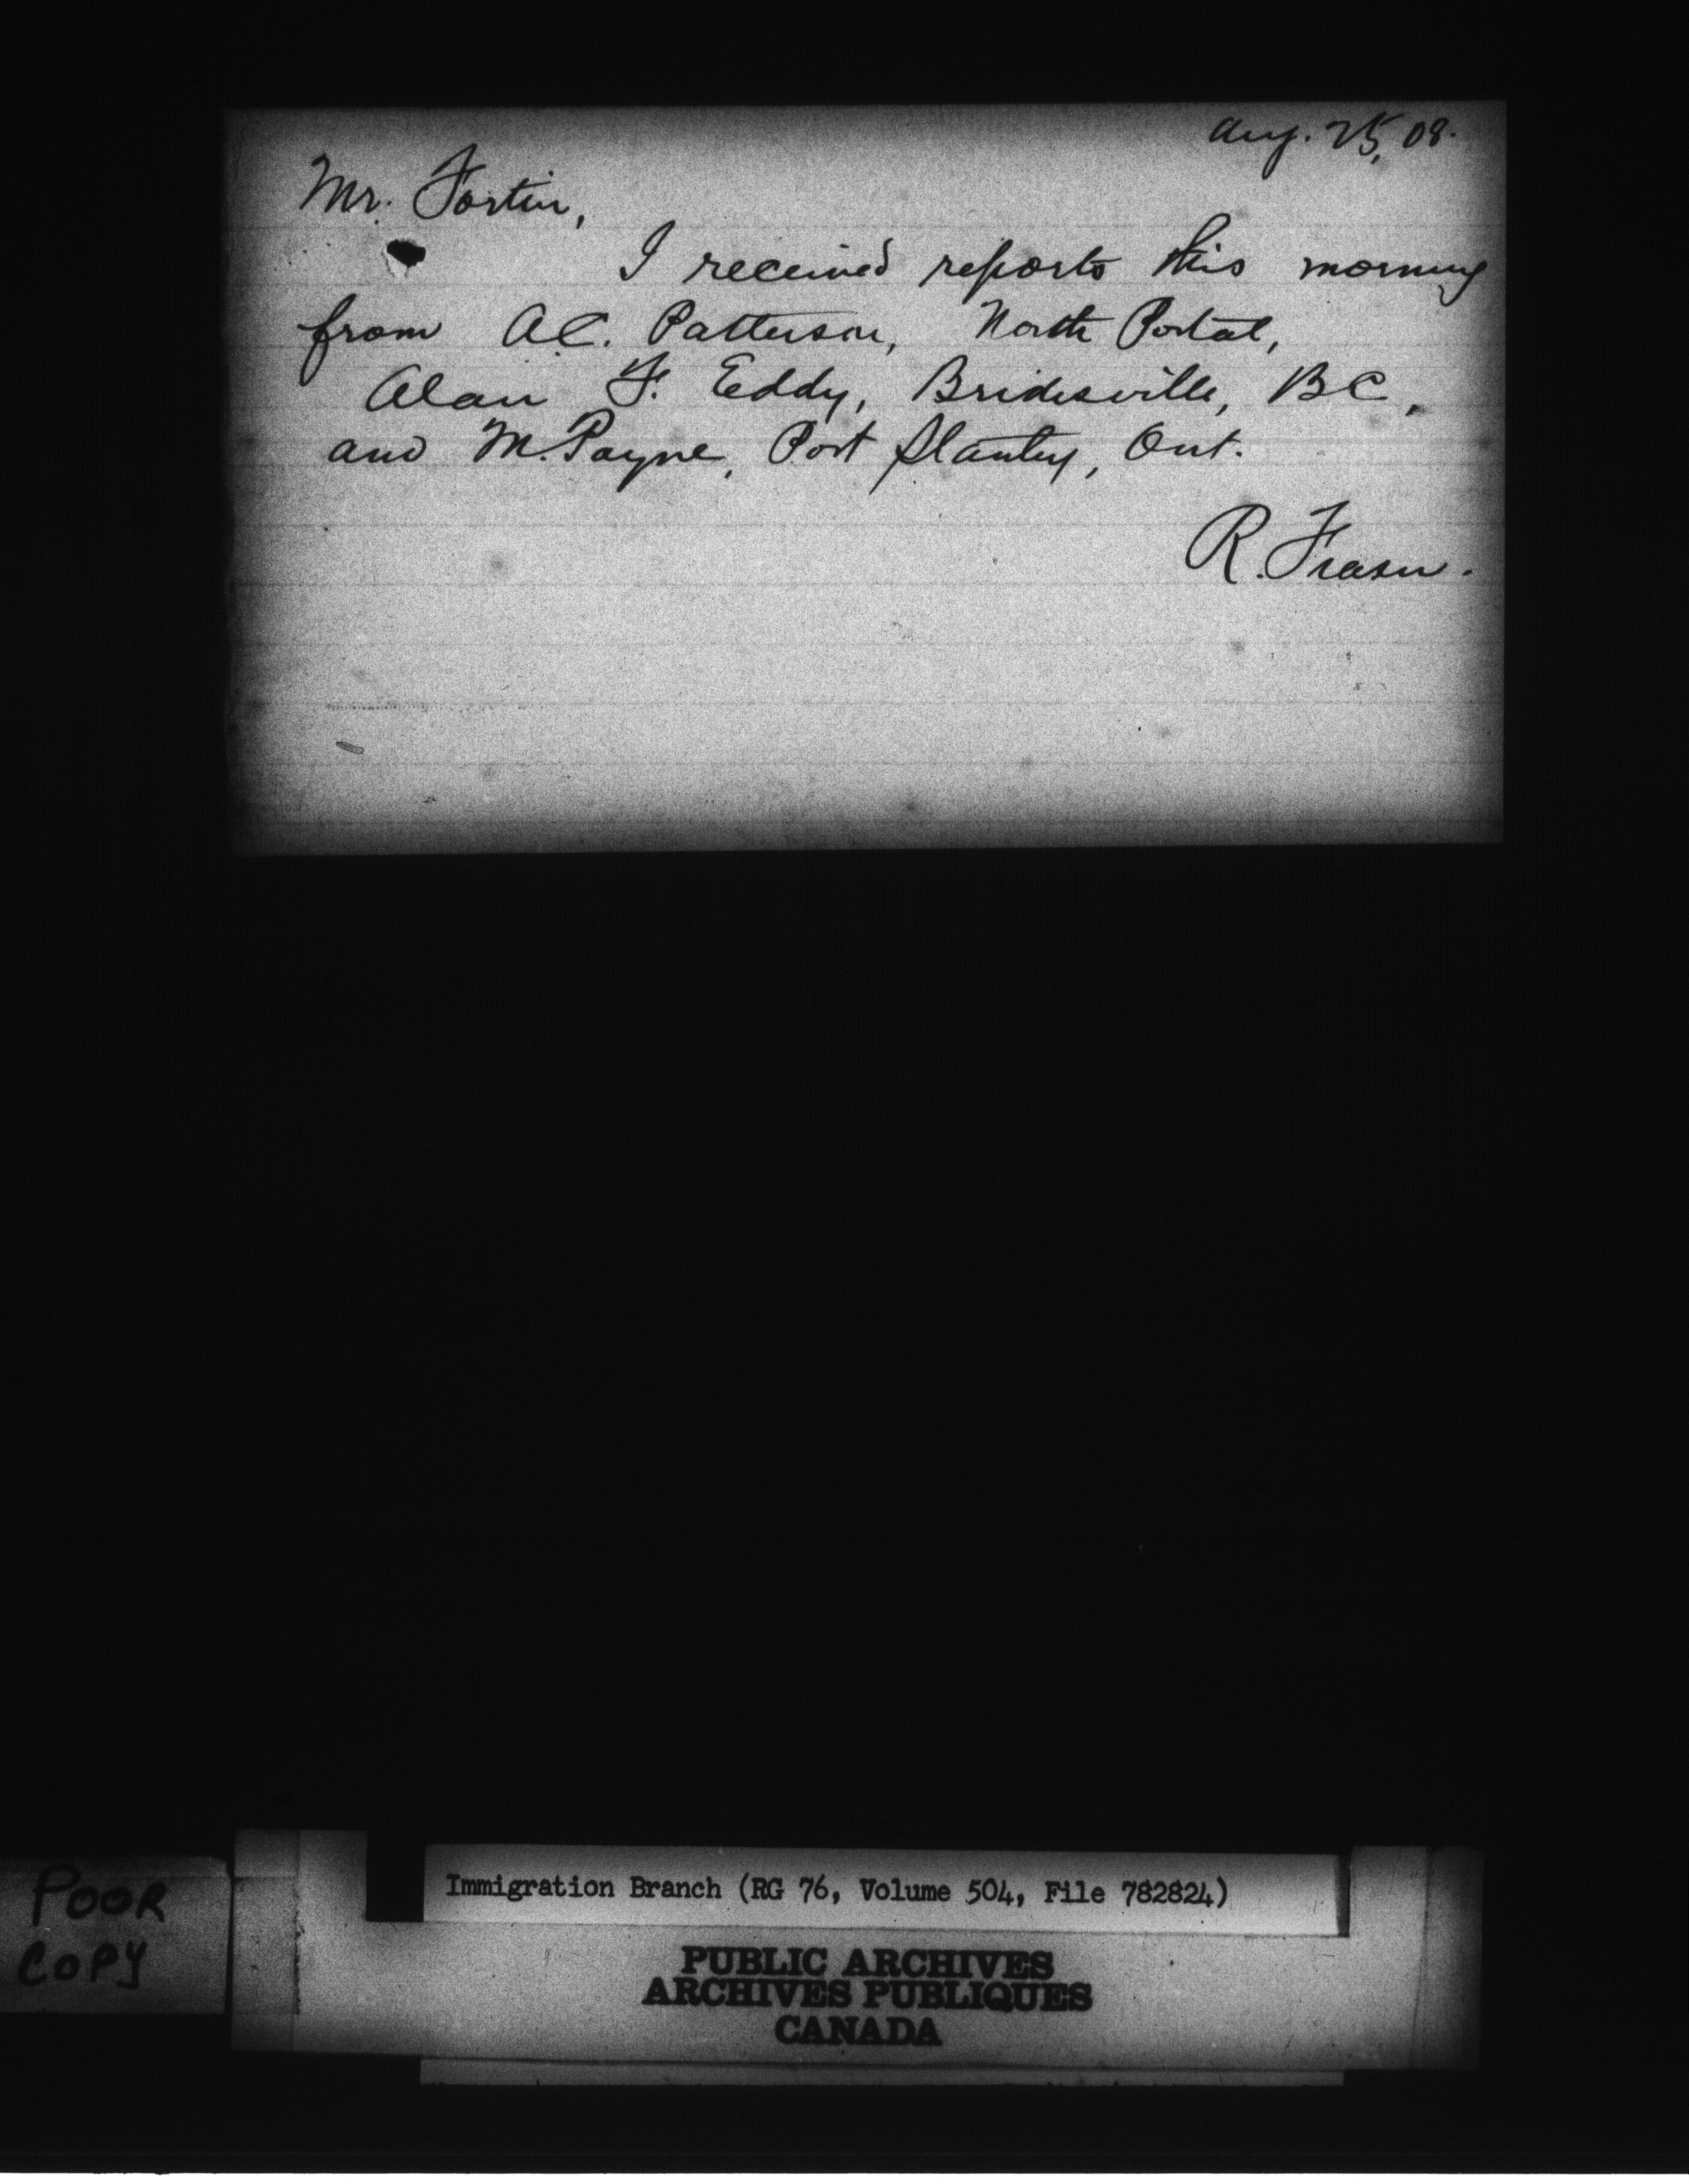 Aug. 25, 08.
Mr. Fortin,
I received reports this morning
from A.C. Patterson, North Portal,
Alan F. Eddy, Bridesville, BC,
and M. Payne, Port Stanley, Ont.
R. Fraser.
POOR
COPY
Immigration Branch (RG 76, Volume 504, File 782824)
PUBLIC ARCHIVES
ARCHIVES PUBLIQUES
CANADA